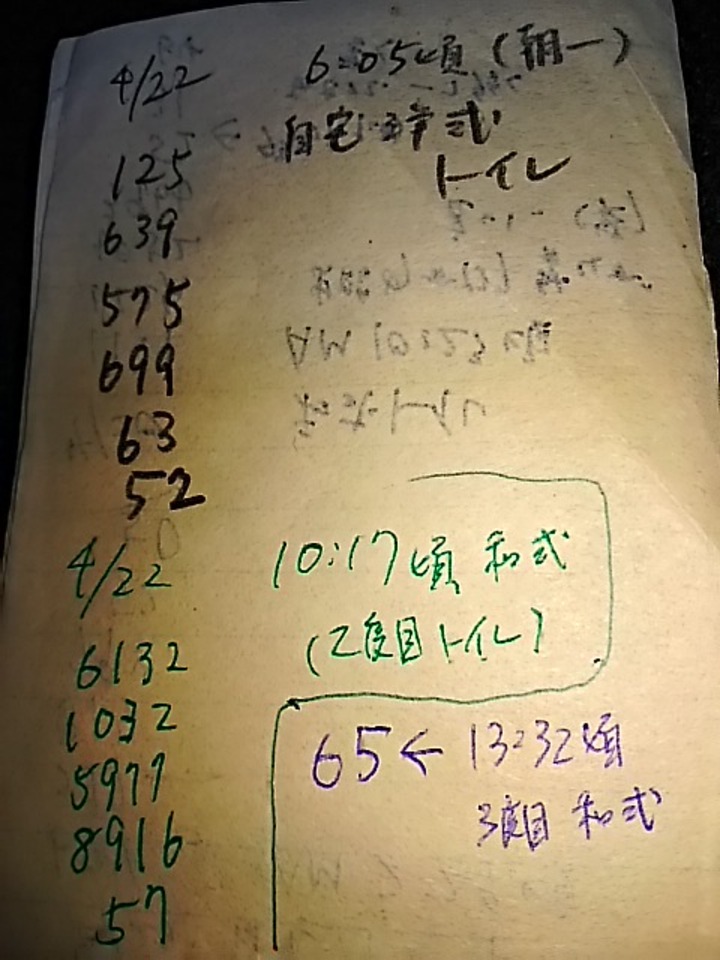 4/22 6:05頃(朝一)
自宅洋式
トイレ
125
639
575
699
63
52
4/22 10:17頃 和式
(2度目トイレ)
6132
1032
5977
8916
57
65← 13:32頃
3度目 和式